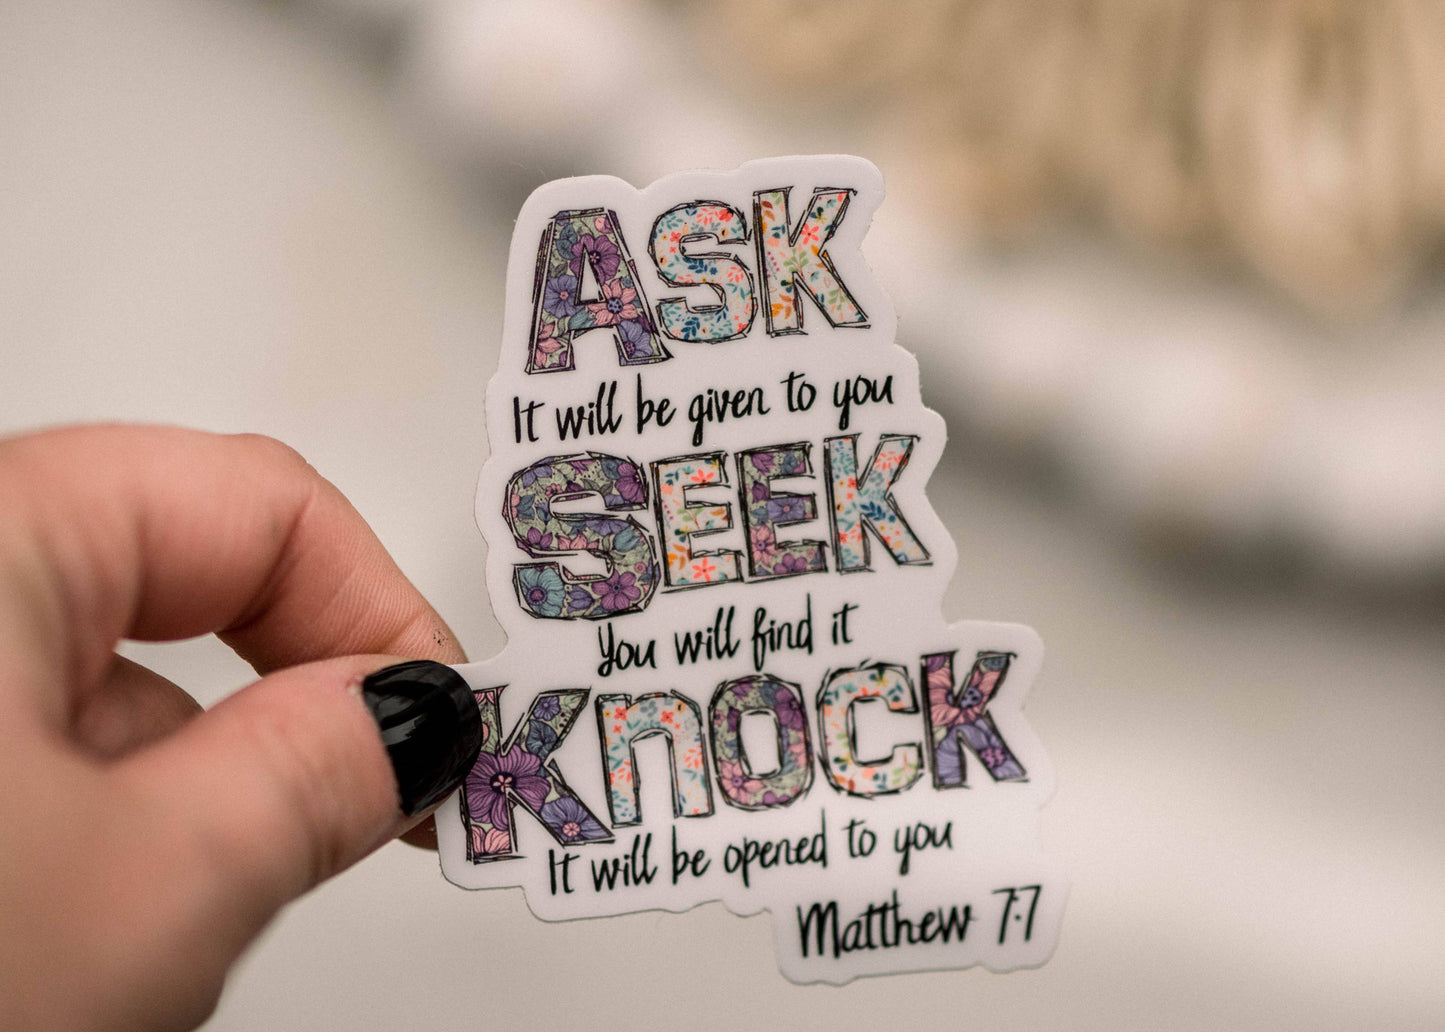 ASK
It will be given to you
SEEK
You will find it
KnOCK
It will be opened to you
Matthew 7:7